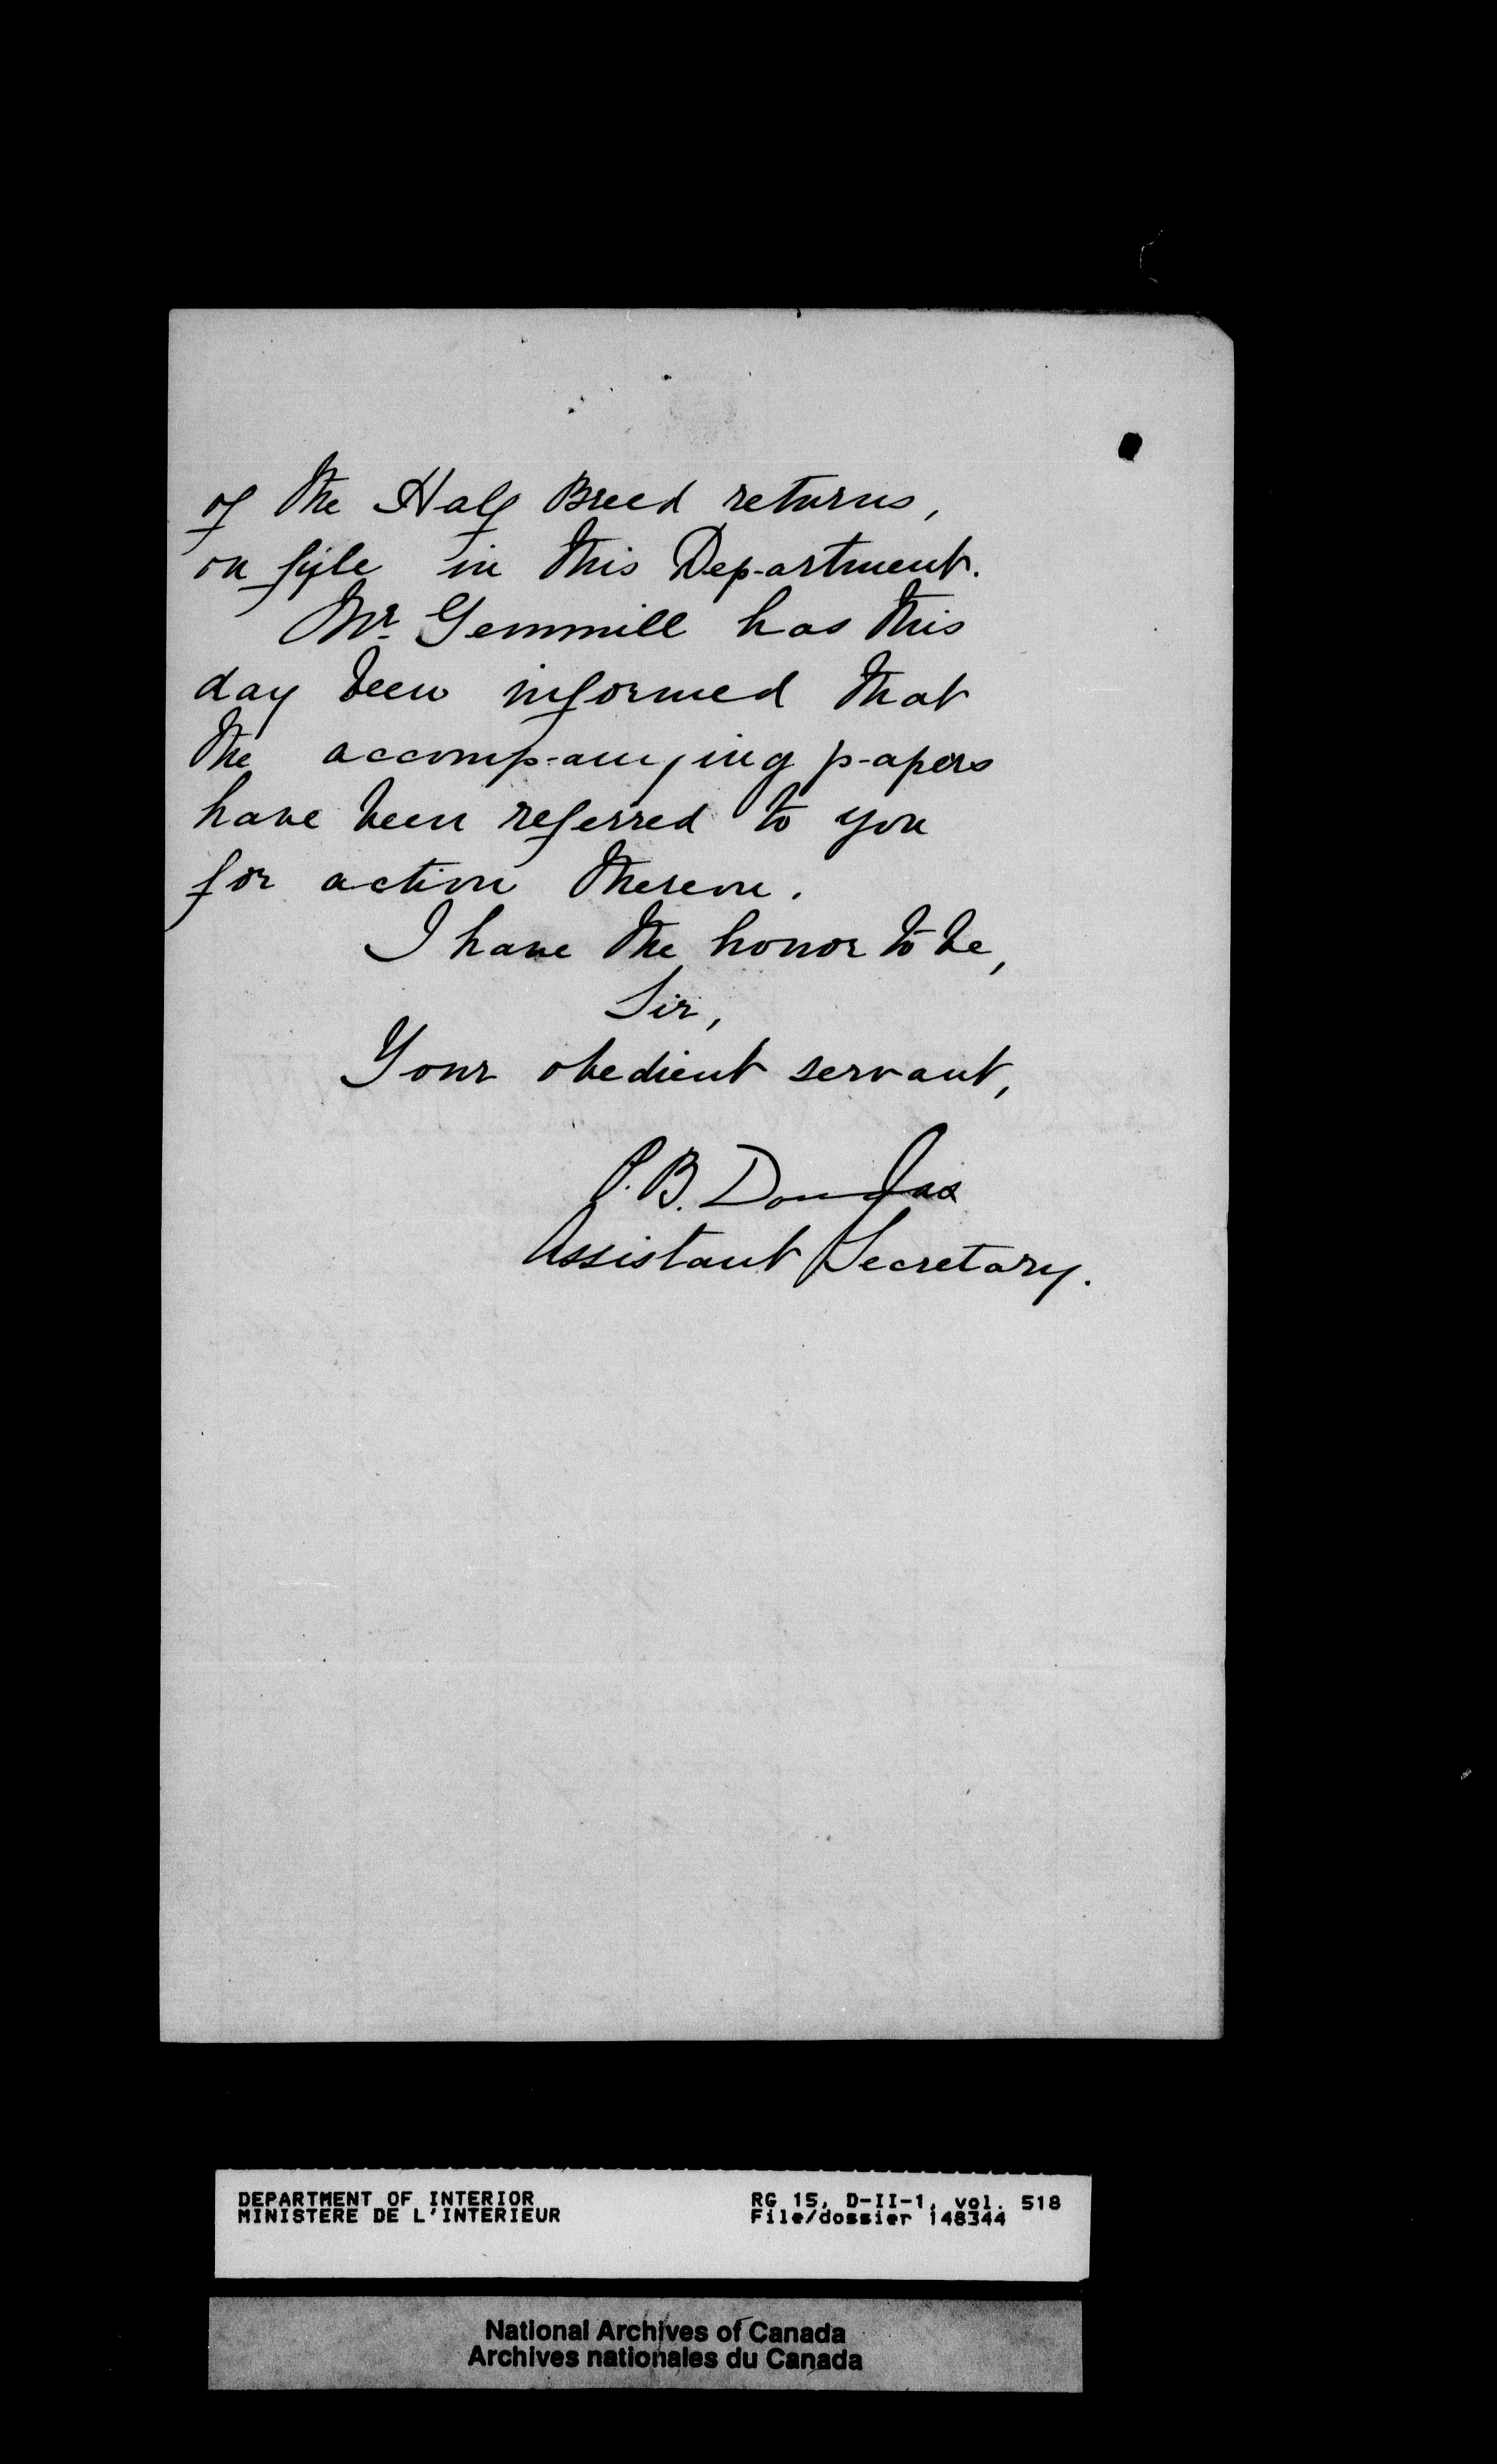 of the Half Breed returns,
on fyle in this Department.
Mr. Gemmill has this
day been informed that
the accompanying papers
have been referred to you
for action thereon.
I have the honor to be,
Sir,
Your obedient servant,
P. B. Douglas
Assistant Secretary.
DEPARTMENT OF INTERIOR
MINISTERE DE L'INTERIEUR
RG 15, D-II-1, vol. 518
File/dossier 148344
National Archives of Canada
Archives nationales du Canada